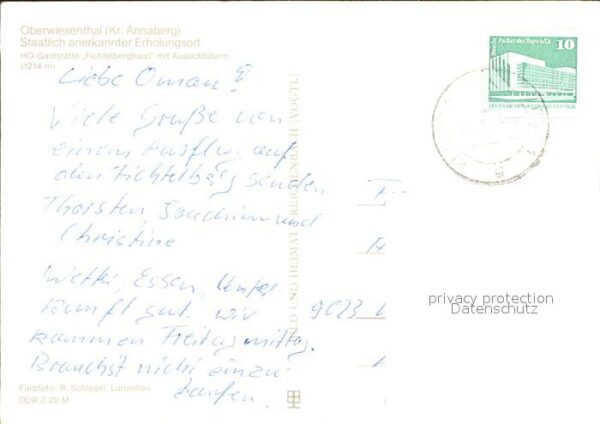 Oberwiesenthal (Kr. Annaberg)
Staatlich anerkannter Erholungsort
HO-Gaststätte „Fichtelberghaus" mit Aussichtsturm
(1214 m)
Liebe Oma
Viele Grüße von
einem Ausflug auf
den Fichtelberg senden
Thorsten, Joachim und
Christine
Wetter, Essen, Unter-
kunft gut. Wir
kommen Freitagmittag.
Brauchst nicht einzu-
kaufen.
Farbfoto: R. Schlegel, Lunzenau
DDR 0,20 M
BILD UND HEIMAT REICHENBACH (VOGTL)
Berlin, Palast der Republik
10
DEUTSCHE DEMOKRATISCHE REPUBLIK
9023
privacy protection
Datenschutz